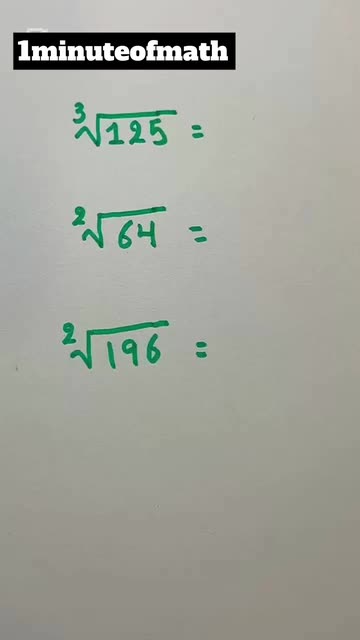 1minuteofmath
∛125 =
²√64 =
²√196 =